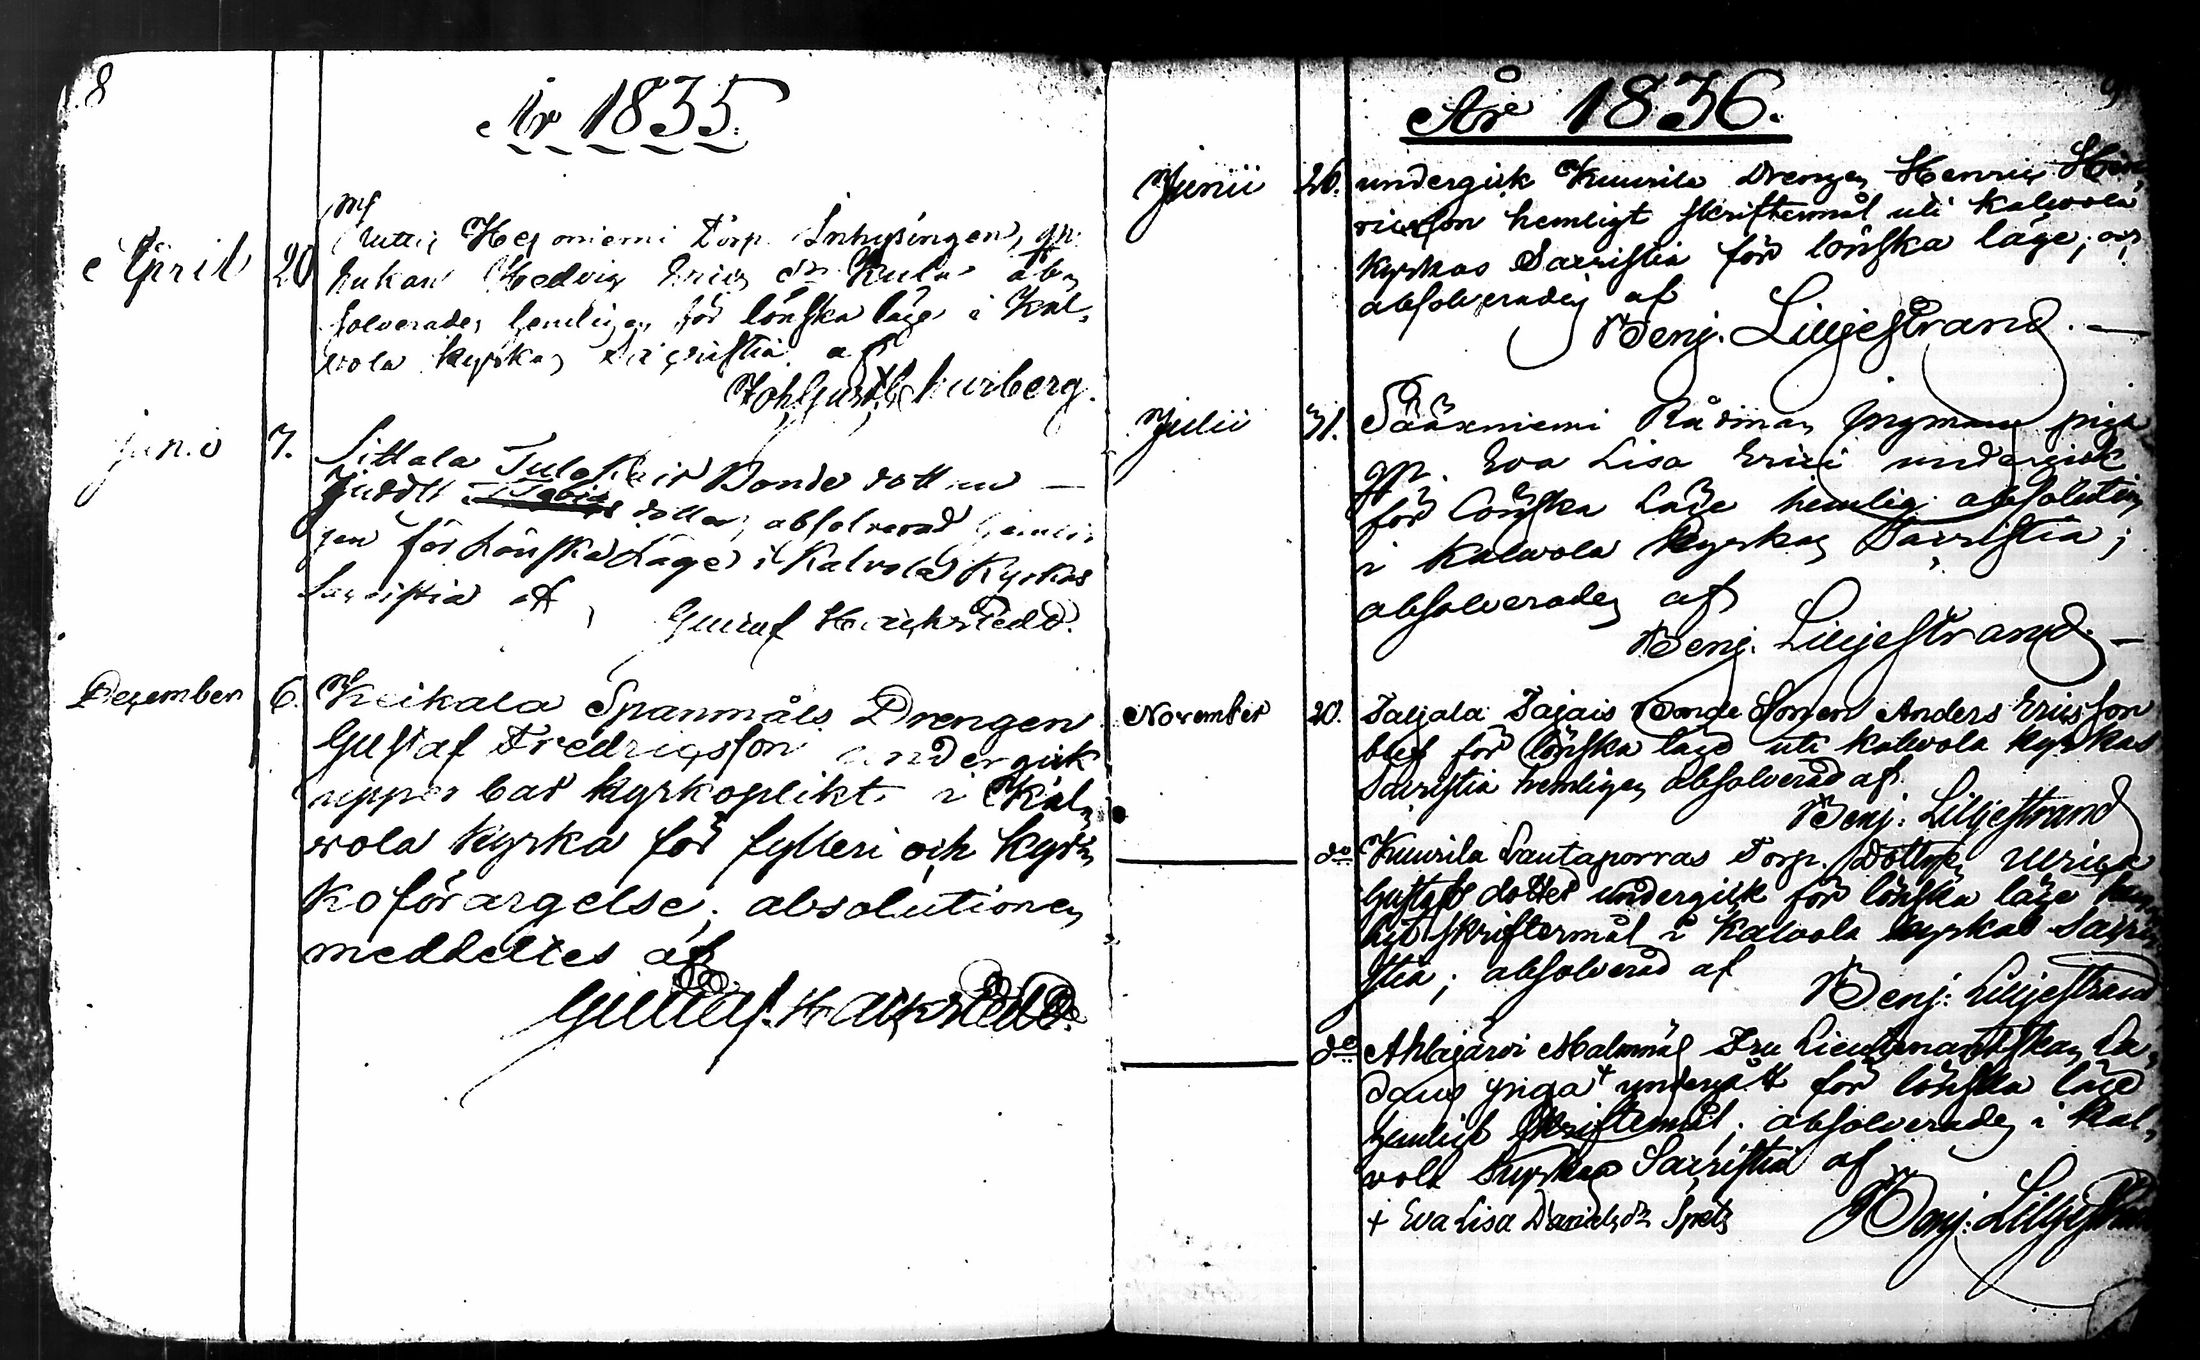 8
År 1835.
April 20
Torp Inhysingen, gp.
Hedvig
solverades hemligen för lönska läge i Kal,
vola kyrkas Sacristia af
Joh. Gust. Schurberg.
Juni 7.
Sittala Bonde dotteren —
Judith dotter, absolverad hemli,
gen för Lönska Läge i Kalvola Kyrkas
Sacristia af
Gustaf
Dezember 6.
Keikala Spanmåls Drengen
Gustaf Fredricsson undergick
uppenbar kyrkoplikt i Kal,
vola kyrka för fylleri och kyr,
koförargelse; absolutionen
meddeltes af
Gustaf
9
År 1836.
Junii 26.
undergick Kuurila Drengen Henric Hen,
ricsson hemligt skriftermål uti Kalvola
kyrkas Sacristia för lönska läge; och
absolverades af
Benj. Liljestrand. —
Julii 31.
Sääxmiemi Rådman Yngmans piga
gp. Eva Lisa Erici undergick
för lönska läge hemlig absolution
i Kalvola kyrkas Sacristia;
absolverades af
Benj. Liljestrand. —
November 20.
Taljala Jajais Bonde Sonen Anders Ericsson
blef för lönska läge uti Kalvola kyrkas
Sacristia hemligen absolverad af
Benj. Liljestrand
do Kuurila Rautaporras Torp. Dottren Ulrica
Gustafs dotter undergick för lönska läge hem,
ligt skriftermål i Kalvola kyrkas Sacri,
stia; absolverad af
Benj. Liljestrand
do Ahlajärvi Fru Lieutenantskan La,
daus piga + undergått för lönska läge
hemligt skriftermål; absolverades i Kal,
vola kyrkas Sacristia af
+ Eva Lisa Daniels dr Spets
Benj. Liljestrand